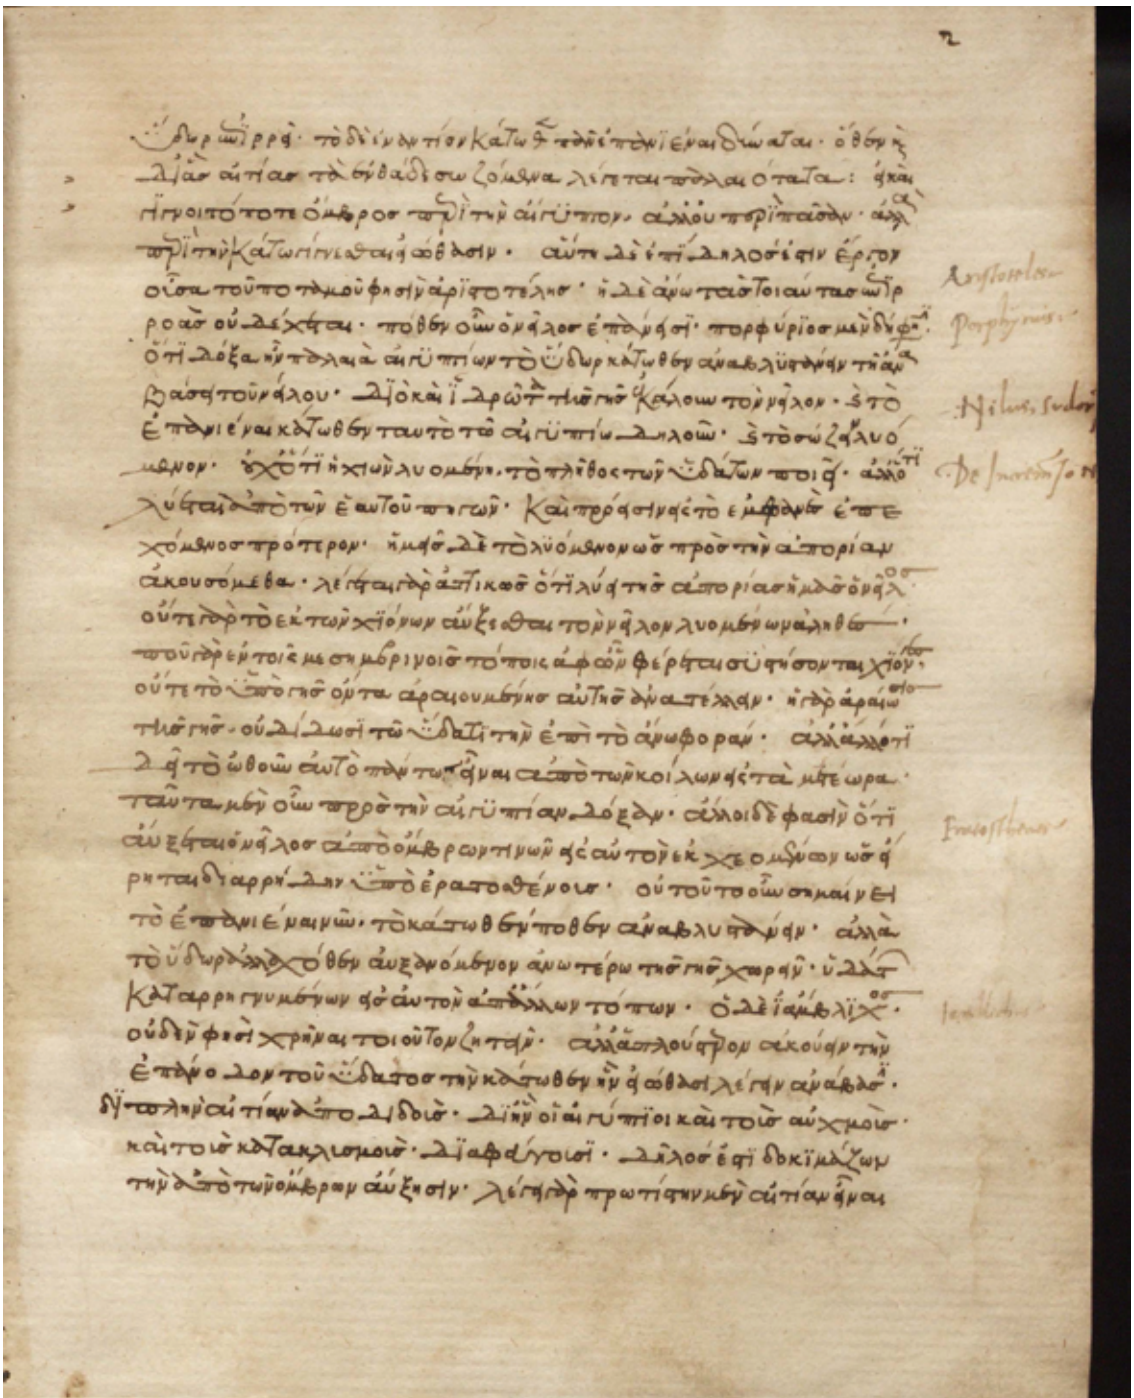 2
ὕδωρ ἐπιρρεῖ· τὸ δὲ ἐναντίον κάτωθεν πᾶν ἐπανϊέναι δύναται· ὅθεν καὶ
διὰ τὰς αἰτίας τὰ ἐνθάδε σωζόμενα λέγεται παλαιότατα: εἰ καὶ
γίγνοιτό ποτε ὄμβρος περὶ τὴν αἴγϋπτον, ἀλλ' οὔ τι περϊ πᾶσαν· ἀλλὰ
περὶ τὴν κάτω γίγνεσθαι εἰώθασιν· αὕτη δὲ ἐπϊδηλός ἐστιν ἔργον
οὖσα τοῦ ποταμοῦ φησὶν ἀρϊστοτέλης· ἡ δὲ ἄνω τὰς τοιαύτας ἐπϊρ
ροὰς οὐ δέχεται· πόθεν οὖν ὁ νεῖλος ἐπάνεισϊ· πορφύρϊος μὲν δή φησϊν·
ὅτϊ δόξα ἦν παλαιὰ αἰγϋπτίων τὸ ὕδωρ κάτωθεν ἀναβλϋστάνειν τῆ ἀνα
βάσει τοῦ νείλου· δϊὸ καὶ ἱδρῶτα τῆς γῆς ἐκάλουν τὸν νεῖλον· καὶ τὸ
ἐπανιέναι κάτωθεν ταυτὸ τῶ αἰγϋπτίω δηλοῦν· καὶ τὸ σώζει λυό
μενον· οὐχ ὅτϊ ἡ χιὼν λυομένη, τὸ πλῆθος τῶν ὑδάτων ποιεῖ· ἀλλ' ὅτϊ
λύεται ἀπὸ τῶν ἑαυτοῦ πηγῶν· καὶ πρόεισιν εἰς τὸ ἐμφανὲς ἐπε
χόμενος πρότερον· ἡμεῖς δὲ τὸ λϋόμενον ὡς πρὸς τὴν ἀπορίαν
ἀκουσόμεθα· λέγεται γὰρ ἀττικῶς ὅτϊ λύει τῆς ἀπορίας ἡμᾶς ὁ νεῖλος
οὔτε γὰρ τὸ ἐκ τῶν χϊόνων αὔξεσθαι τὸν νεῖλον λυομένων ἀληθές·
ποῦ γὰρ ἐν τοῖς μεσημβρινοῖς τόποις ἀφ' ὧν φέρεται συστήσονται χϊόνες·
οὔτε τὸ ὑπὸ γῆς ὄντα ἀραιουμένης αὐτῆς ἀνατέλλειν· ἡ γὰρ ἀραίωσις
τῆς γῆς, οὐ δίδωσϊ τῶ ὕδατϊ τὴν ἐπὶ τὸ ἄνω φοράν· ἀλλ' ἄλλό τϊ
δεῖ τὸ ὠθοῦν αὐτὸ πάντως εἶναι ἀπὸ τῶν κοίλων εἰς τὰ μετέωρα·
ταῦτα μὲν οὖν πρὸς τὴν αἰγϋπτίαν δόξαν· ἄλλοι δέ φασὶν ὅτϊ
αὔξεται ὁ νεῖλος ἀπὸ ὄμβρων τινῶν εἰς αὐτὸν ἐκχεομένων ὡς εἴ
ρηται διαρρήδην ὑπὸ ἐρατοσθένους· οὐ τοῦτο οὖν σημαίνει
τὸ ἐπανιέναι νῦν, τὸ κάτωθέν ποθεν ἀναβλυστάνειν· ἀλλὰ
τὸ ὕδωρ ἀλλαχόθεν αὐξανόμενον ἀνωτέρω τῆς γῆς χωρεῖν· ὑδάτων
καταρρηγνυμένων εἰς αὐτὸν ἀπ' ἄλλων τόπων· ὁ δὲ ἰάμβλϊχος·
οὐδέν φησὶ χρῆναι τοιοῦτον ζητεῖν· ἀλλ' ἁπλούστερον ἀκούειν τὴν
ἐπάνοδον τοῦ ὕδατος τὴν κάτωθεν ἣν εἰώθασι λέγειν ἀνάβασϊν·
διπλῆν αἰτίαν ἀποδιδοὺς· δϊ' ἣν οἱ αἰγύπτϊοι καὶ τοὺς αὐχμοὺς·
καὶ τοὺς κατακλισμοὺς· δϊαφεύγουσϊ· δῆλός ἐστϊ δοκϊμάζων
τὴν ἀπὸ τῶν ὄμβρων αὔξησϊν· λέγει γὰρ πρωτίστην μὲν αἰτίαν εἶναι
Aristoteles
Porphyrius
Nilus, sudor
De Incremento N
Eratosthenes
Iamblichus